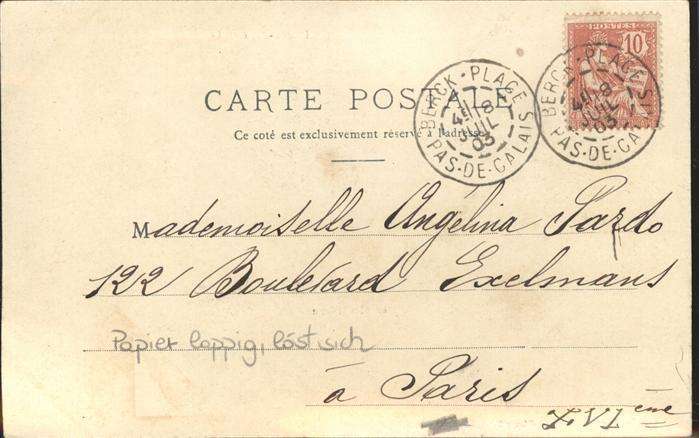 POSTES
10
CARTE POSTALE
BERCK-PLAGE
4E 8
JUIL
03
PAS-DE-CALAIS
BERCK-PLAGE
4E 8
JUIL
03
PAS-DE-CALAIS
Ce coté est exclusivement réservé à l'adresse
Mademoiselle Angélina Pardo
122 Boulevard Exelmans
Papier lappig, löst sich
à Paris
XVIème